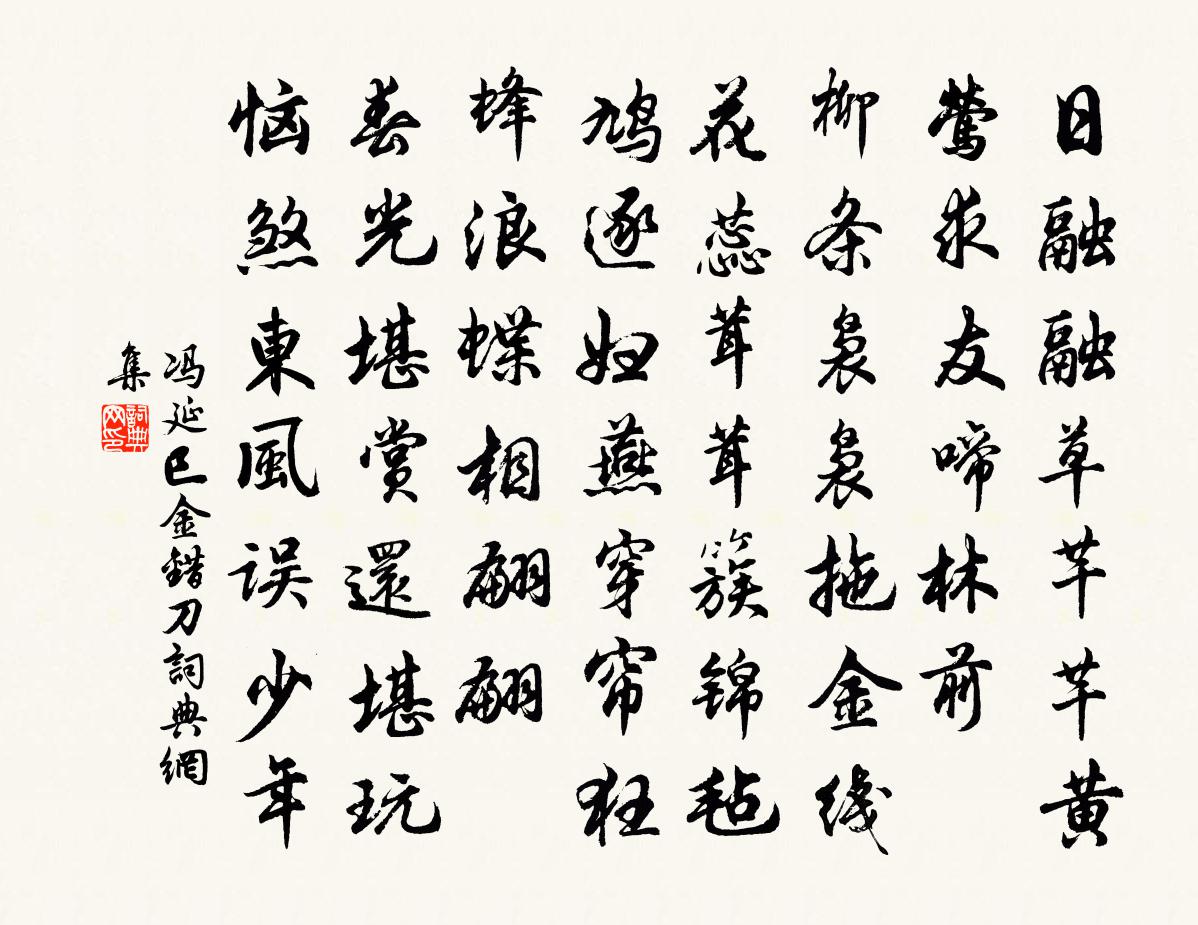 日融融草芊芊黄
莺求友啼林前
柳条袅袅拖金线
花蕊茸茸簇锦毡
鸠逐妇燕穿帘狂
蜂浪蝶相翩翩
春光堪赏還堪玩
恼煞東風误少年
冯延巳金錯刀詞典網
集
詞典网印